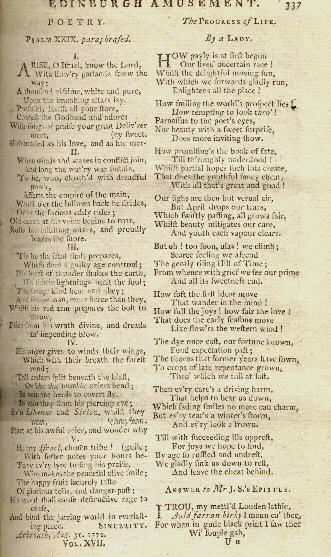 EDINBURGH AMUSEMENT. 337
POETRY.
PSALM XXIX. paraphrased.
I.
ARISE, O Israel, know the Lord,
With flow'ry garlands strew the
way;
A thousand victims, white and pure,
Upon the smoaking altars lay.
Confess the Godhead and adore:
With songs of praise your great Deliv'rer
meet, (by sweet.
II.
When winds and waves in conflict join,
And long this wat'ry war sustain,
'Tis he, who, cloath'd with dreadful
Assists the empire of the main,
Whilst o'er the billows back he strides,
Old ocean at his voice begins to roar,
Rolls his waves, and proudly
braves the shore.
III.
'Tis he the thunder shakes the earth,
His nimble lightnings the soul;
Whilst his red arm prepares the bolt to
throw,
Flies from his wrath divine, and dreads
th' impending blow.
IV.
His anger gives to winds their wings,
Which with their breath the forest
rend;
Till cedars split beneath the blast,
Or like the humble orders bend;
In vain the herds to covert fly,
In vain they shun his piercing eye;
Ev'n Libanus and Sirion, whilst they
hear,
Start at his awful voice, and wonder why
V.
He, my Israel, chosen tribe! (guide;
With softer notes your hours
Tune ev'ry lyre to sing his praise,
Who makes the peaceful olive smile;
The happy fruit securely taste
Of glorious toils, and dangers past;
His word shall cause destructive rage to
cease,
And bind the jarring world in everlast-
ing peace. SINCERITY.
Arbroath, Aug. 31. 1772.
VOL. XVII.
The PROGRESS of LIFE.
By a LADY.
HOW gayly is at first begun
Our lives' uncertain race!
Whilst the delightful moving sun,
With which we forwards gladly run,
Enlightens all the place!
How smiling the world's prospect lies
How tempting to look thro'!
Parnassus to the poet's eyes,
Nor beauty with a sweet surprise,
Does more inviting show.
How promising's the book of fate,
Till thoroughly understood!
Whilst partial hopes such lots create,
That does the youthful fancy cheat,
With all that's great and good!
Our sighs are then but vernal air,
But April drops our tears,
Which swiftly passing, all grows fair,
Whilst beauty mitigates our care,
And youth each vapour clears.
But oh! too soon, alas! we climb;
Scarce feeling we ascend
The gently rising Hill of Time;
From whence with grief we see our prime
And all its sweetness end.
How soft the first ideas move
That wander in the mind!
How full the joys! how fair the love!
That does the early season move
Like flow'rs the western wind!
The dye once cast, our fortune known,
Fond expectation past;
The thorns that former years have sown,
To crops of late repentance grown,
Thro' which we toil at last.
Then ev'ry care's a driving harm,
That helps to bear us down,
Which fading smiles no more can charm,
But ev'ry tear's a winter's storm,
And ev'ry look a frown.
Till with succeeding ills opprest,
For joys we hope to find,
By age to ruffled and undrest,
We gladly sink us down to rest,
And leave the cheat behind.
ANSWER to Mr J. S.'s EPISTLE.
I TROU, my mettl'd Louden lathie,
Auld farran birky I maun ca' thee,
For when in gude black print I saw thee
Wi' souple gab,
U u